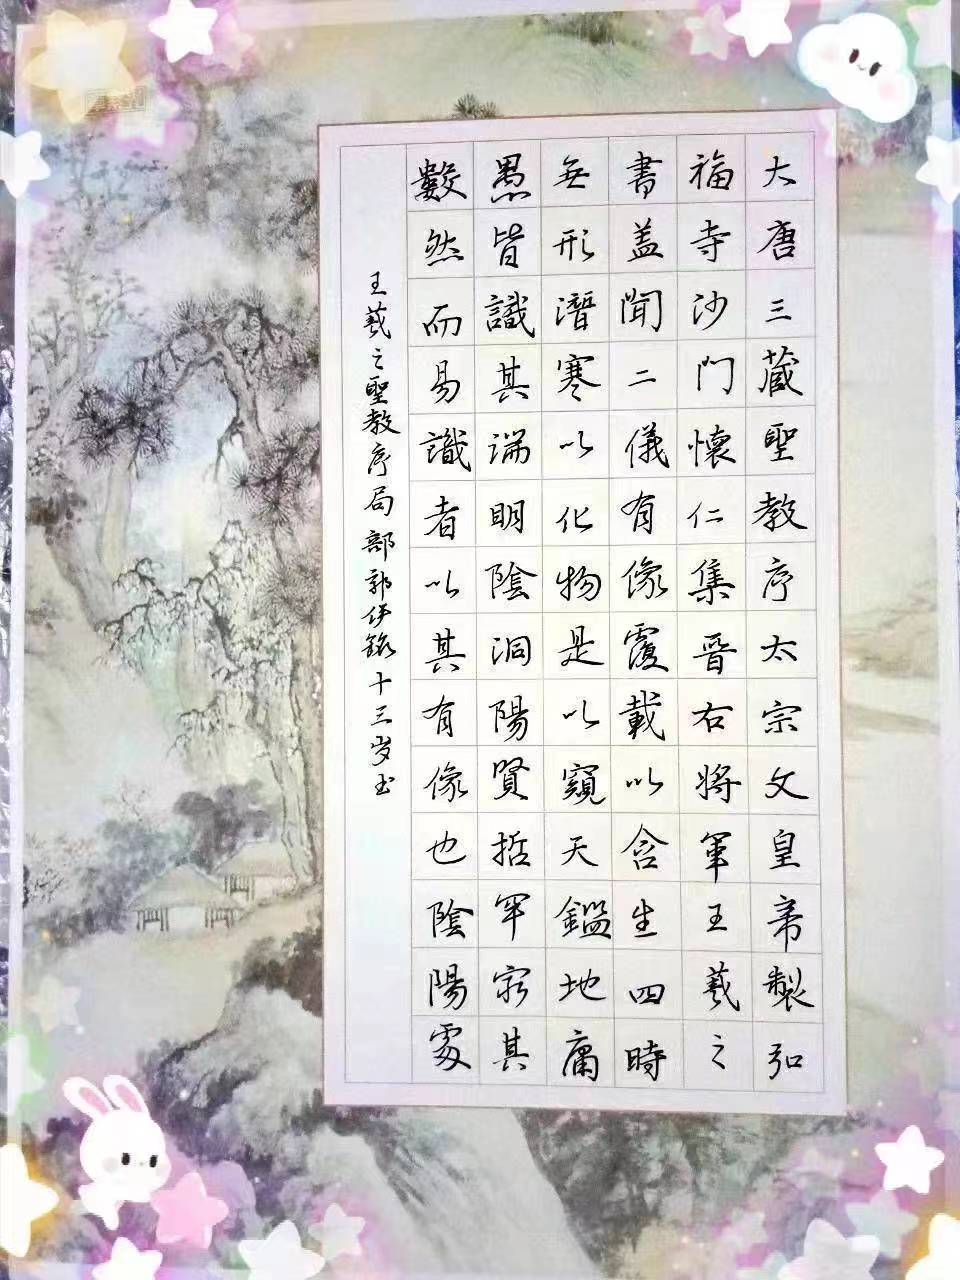 大唐三藏聖教序太宗文皇帝製弘
福寺沙門懷仁集晉右將軍王羲之
書蓋聞二儀有像覆載以含生四時
無形潛寒以化物是以窺天鑑地庸
愚皆識其端明陰洞陽賢哲罕窮其
數然而易識者以其有像也陰陽處
王羲之聖教序局部郭伊銘十三岁书